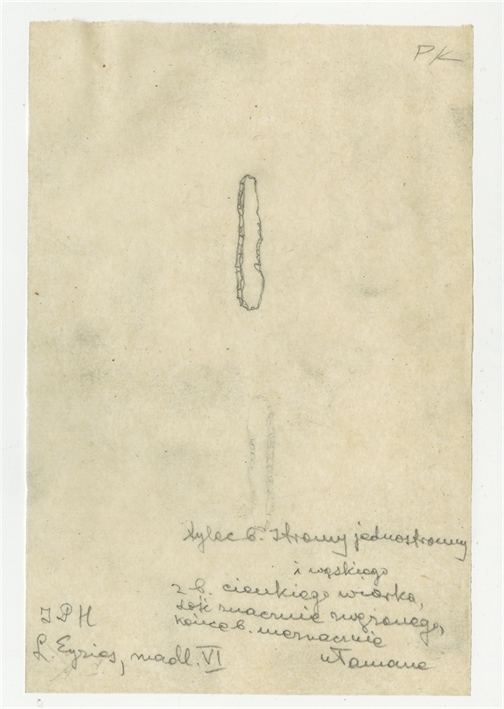 PK
tylec b. stromy jednostronny
i wąskiego
z b. cienkiego wiórka,
dość znacznie zwężonego,
końce b. nieznacznie
ułamane
IPH
L. Eyzies, nadl. VI